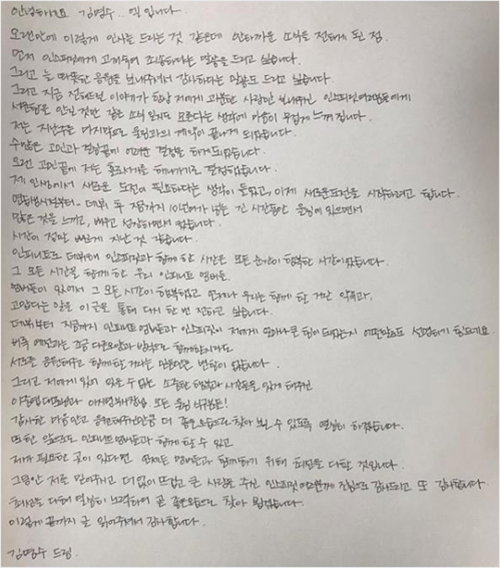 안녕하세요 김명수.. 엘 입니다.
오랜만에 이렇게 인사를 드리는 것 같은데 안타까운 소식을 전하게 된 점.
먼저 인스피릿에게 고개숙여 죄송하다는 말씀을 드리고 싶습니다.
그리고 늘 따뜻한 응원을 보내주셔서 감사하다는 말씀도 드리고 싶습니다.
그리고 지금 전해드린 이야기가 항상 저에게 과분한 사랑만 보내주신 인스피릿여러분들에게
서운함을 안길 것만 같은 소식일지도 모른다는 생각에 마음이 무겁게 느껴집니다.
저는 지난주를 마지막으로 울림과의 계약이 끝나게 되었습니다.
수많은 고민과 결정끝에 어려운 결정을 하게되었습니다.
오랜 고민끝에 저는 홀로서기를 해나가기로 결정했습니다.
제 인생에서 새로운 도전이 필요하다는 생각이 들었고, 이제 새로운도전을 시작하려고 합니다.
연습생시절부터~ 데뷔 후 지금까지 10년여가 넘는 긴 시간동안 울림에 있으면서
많은 것을 느끼고, 배우고 성장하면서 왔습니다.
시간이 정말 빠르게 지난 것 같습니다.
인피니트로 데뷔해 인스피릿과 함께 한 시간은 모든 순간이 행복한 시간이었습니다.
그 모든 시간을 함께 한 우리 인피니트 멤버들.
멤버들이 있어서 그 모든 시간이 행복했고 언제나 우리는 함께 할 거란 약속과,
고맙다는 말은 이 글을 통해 다시 한 번 전하고 싶습니다.
데뷔부터 지금까지 인피니트 멤버들과 인스피릿이 저에게 얼마나 큰 힘이 되었는지 어떤말로도 설명하기 힘드네요
비록 예전과는 조금 다른모양과 방식으로 함께할지라도
서로를 응원해주고 함께할 거라는 믿음만은 변함이 없습니다.
그리고 저에게 있어 잊을 수 없는 소중한 행복과 시간들을 있게 해주신
이중엽대표님과 울림 식구분들!
감사한 마음안고 응원해주신만큼 더 좋은모습으로 찾아 뵐 수 있도록 열심히 하겠습니다.
또한 앞으로도 인피니트 멤버들과 함께 할 수 있고
제가 필요한 곳이 있다면 언제든 멤버들과 함께하기 위해 최선을 다할 것입니다.
그동안 저를 믿어주시고 더없이 뜨겁고 큰 사랑을 주신 인스피릿 여러분께 진심으로 감사드리고 또 감사합니다.
최선을 다해 열심히 노력하여 곧 좋은모습으로 찾아 뵙겠습니다.
이렇게 끝까지 글 읽어주셔서 감사합니다.
김명수 드림.